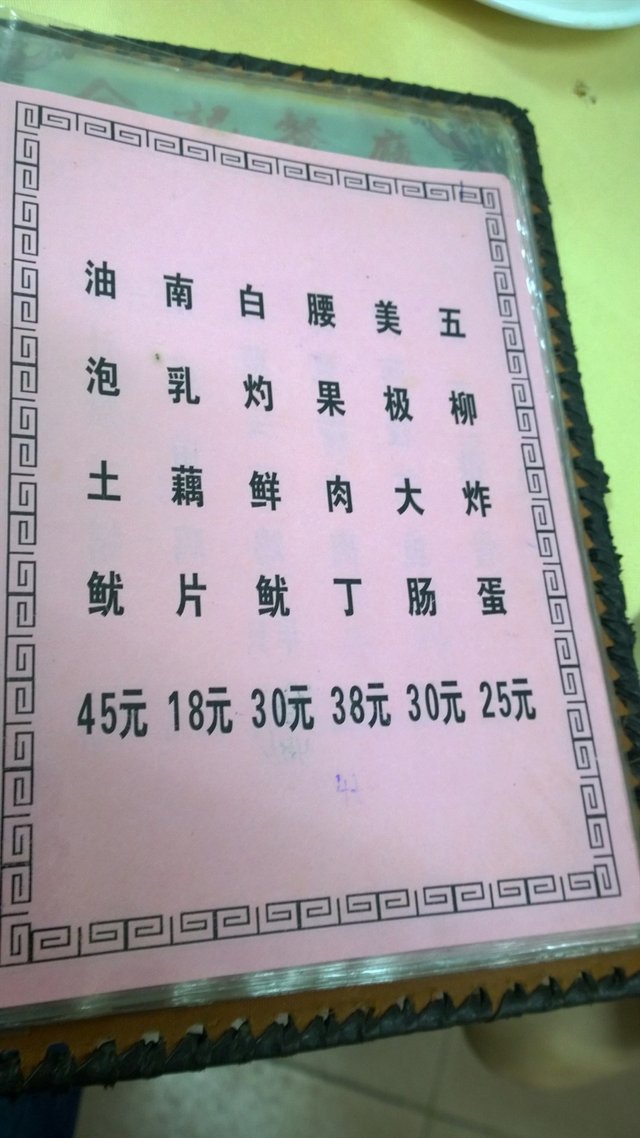 記餐廳
五柳炸蛋 25元
美极大肠 30元
腰果肉丁 38元
白灼鲜鱿 30元
南乳藕片 18元
油泡土鱿 45元